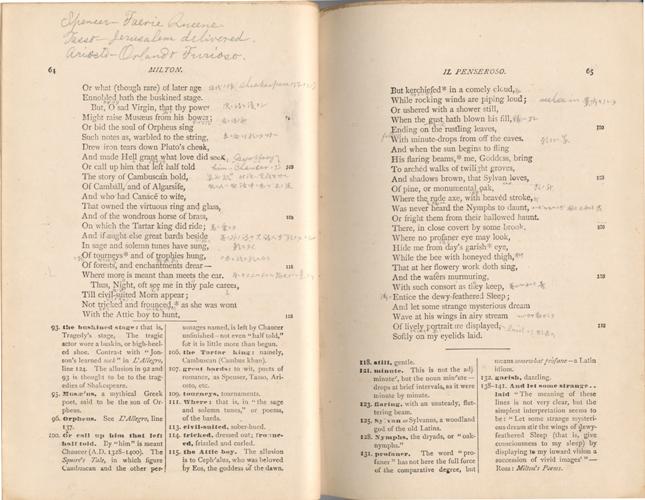 Spencer - Faerie Queene.
Tasso - Jerusalem delivered.
Ariosto - Orlando Furioso.
64
MILTON.
Or what (though rare) of later age
Ennobled hath the buskined stage.
But, O sad Virgin, that thy power
Might raise Musæus from his bower;
Or bid the soul of Orpheus sing
Such notes as, warbled to the string,
Drew iron tears down Pluto's cheek,
And made Hell grant what love did seek,
Or call up him that left half told
The story of Cambuscan bold,
Of Camball, and of Algarsife,
And who had Canacè to wife,
That owned the virtuous ring and glass,
And of the wondrous horse of brass,
On which the Tartar king did ride;
And if aught else great bards beside
In sage and solemn tunes have sung,
Of tourneys* and of trophies hung,
Of forests, and enchantments drear—
Where more is meant than meets the ear.
Thus, Night, oft see me in thy pale career,
Till civil-suited Morn appear;
Not tricked and frounced,* as she was wont
With the Attic boy to hunt,
93. the buskined stage: that is,
Tragedy's stage. The tragic
actor wore a buskin, or high-heel-
ed shoe. Contrast with "Jon-
son's learned sock" in L'Allegro,
line 124. The allusion in 92 and
93 is thought to be to the trag-
edies of Shakespeare.
95. Musæus, a mythical Greek
poet, said to be the son of Or-
pheus.
96. Orpheus. See L'Allegro, line
137.
100. Or call up him that left
half told. By "him" is meant
Chaucer (A.D. 1328-1400). The
Squire's Tale, in which figure
Cambuscan and the other per-
sonages named, is left by Chaucer
unfinished—not even "half told,"
for it is little more than begun.
106. the Tartar king: namely,
Cambuscan (Cambus khan).
107. great bards: to wit, poets of
romance, as Spenser, Tasso, Ari-
osto, etc.
109. tourneys, tournaments.
111. Where: that is, in "the sage
and solemn tunes," or poems,
of the bards.
113. civil-suited, sober-hued.
114. tricked, dressed out; frounc-
ed, frizzled and curled.
115. the Attic boy. The allusion
is to Ceph'alus, who was beloved
by Eos, the goddess of the dawn.
IL PENSEROSO.
65
But kerchiefed* in a comely cloud,
While rocking winds are piping loud;
Or ushered with a shower still,
When the gust hath blown his fill,
Ending on the rustling leaves,
With minute-drops from off the eaves.
And when the sun begins to fling
His flaring beams,* me, Goddess, bring
To archèd walks of twilight groves,
And shadows brown, that Sylvan loves,
Of pine, or monumental oak,
Where the rude axe, with heavèd stroke,
Was never heard the Nymphs to daunt,
Or fright them from their hallowed haunt.
There, in close covert by some brook,
Where no profaner eye may look,
Hide me from day's garish* eye,
While the bee with honeyed thigh,
That at her flowery work doth sing,
And the waters murmuring,
With such consort as they keep,
Entice the dewy-feathered Sleep;
And let some strange mysterious dream
Wave at his wings in airy stream
Of lively portrait ure displayed,
Softly on my eyelids laid.
118. still, gentle.
121. minute. This is not the adj
minute', but the noun min'ute—
drops at brief intervals, as it were
minute by minute.
123. flaring, with an unsteady, flut-
tering beam.
125. Sylvan or Sylvanus, a woodland
god of the old Latins.
128. Nymphs, the dryads, or "oak-
nymphs."
131. profaner. The word "pro-
faner" has not here the full force
of the comparative degree, but
means somewhat profane—a Latin
idiom.
132. garish, dazzling.
138-141. And let some strange..
laid "The meaning of these
lines is not very clear, but the
simplest interpretation seems to
be: 'Let some strange mysteri-
ous dream stir the wings of dewy-
feathered Sleep (that is, give
consciousness to my sleep) by
displaying to my inward vision a
succession of vivid images'"—
Ross: Milton's Poems.